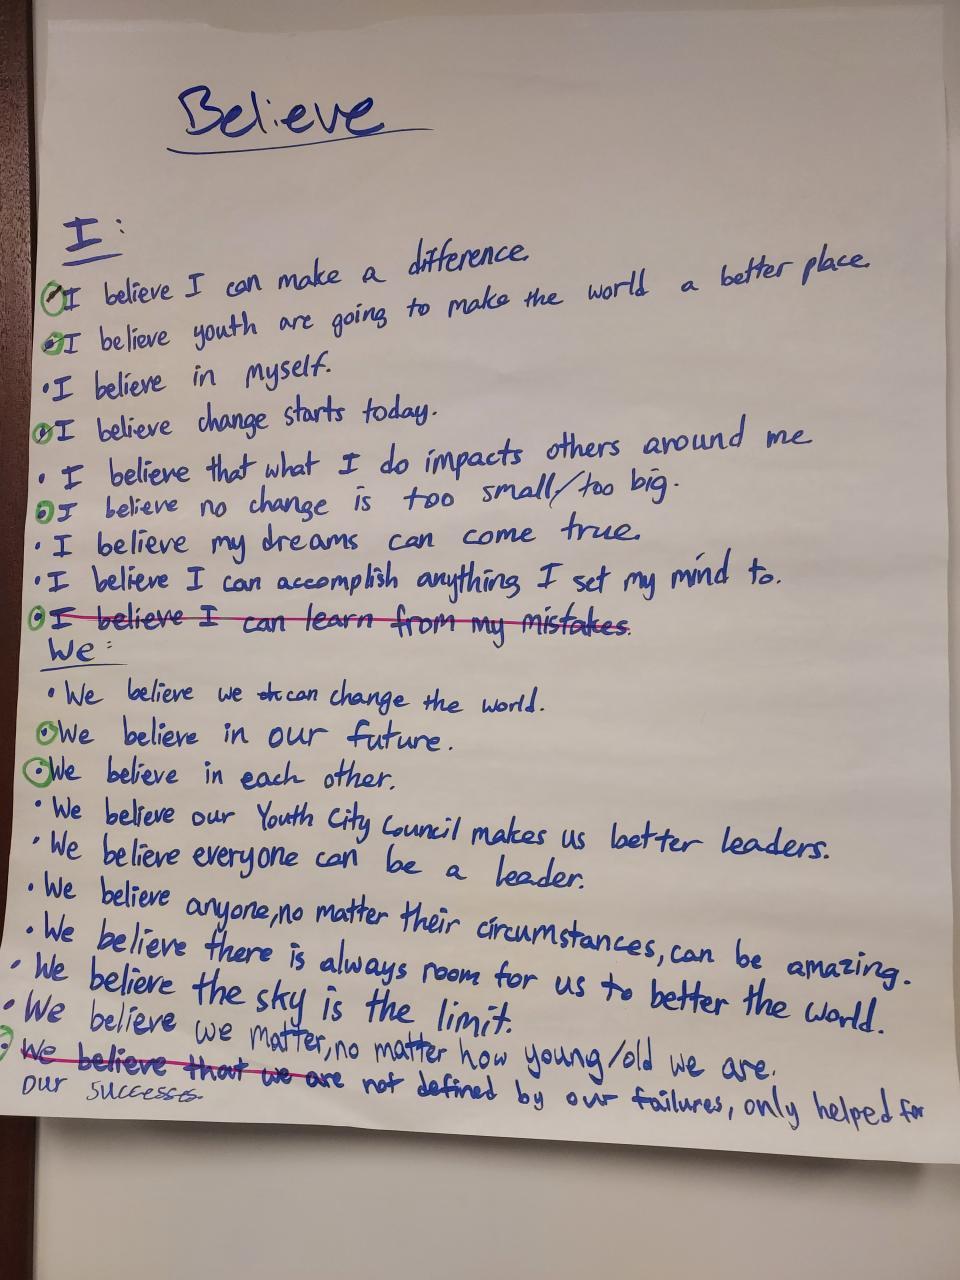 Believe
I:
I believe I can make a difference.
I believe youth are going to make the world a better place.
• I believe in myself.
• I believe change starts today.
• I believe that what I do impacts others around me
• I believe no change is too small/too big.
• I believe my dreams can come true.
• I believe I can accomplish anything I set my mind to.
• I believe I can learn from my mistakes.
We:
• We believe we can change the world.
• We believe in our future.
• We believe in each other.
• We believe our Youth City Council makes us better leaders.
• We believe everyone can be a leader.
• We believe anyone, no matter their circumstances, can be amazing.
• We believe there is always room for us to better the world.
• We believe the sky is the limit.
• We believe we matter, no matter how young/old we are.
• We believe that we are not defined by our failures, only helped for
our successes.